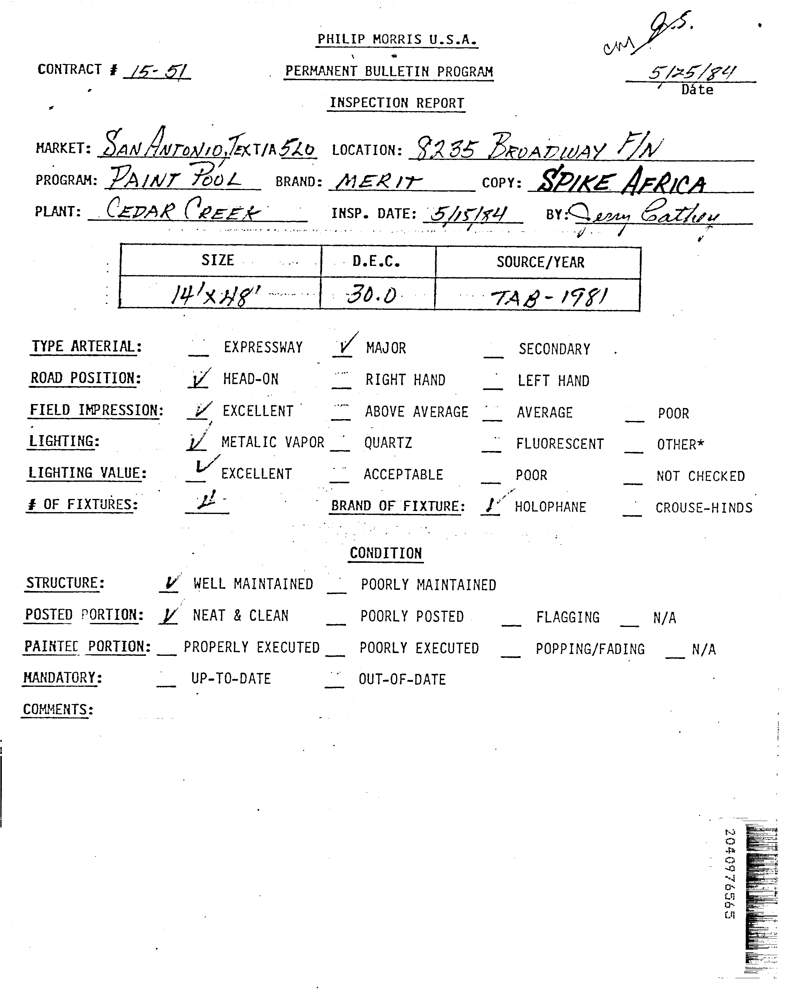 PHILIP MORRIS U.S.A.
CONTRACT # 15-51 PERMANENT BULLETIN PROGRAM 5/25/84
Date
INSPECTION REPORT
MARKET: SAN ANTONIO, TEXT/A 520 LOCATION: 8235 BROADWAY F/N
PROGRAM: PAINT POOL BRAND: MERIT COPY: SPIKE AFRICA
PLANT: CEDAR CREEK INSP. DATE: 5/15/84 BY: Jerry Cathey
SIZE D.E.C. SOURCE/YEAR
14' X 48' 30.0 TAB - 1981
TYPE ARTERIAL: __ EXPRESSWAY ✓ MAJOR __ SECONDARY
ROAD POSITION: ✓ HEAD-ON __ RIGHT HAND __ LEFT HAND
FIELD IMPRESSION: ✓ EXCELLENT __ ABOVE AVERAGE __ AVERAGE __ POOR
LIGHTING: ✓ METALIC VAPOR __ QUARTZ __ FLUORESCENT __ OTHER*
LIGHTING VALUE: ✓ EXCELLENT __ ACCEPTABLE __ POOR __ NOT CHECKED
# OF FIXTURES: BRAND OF FIXTURE: ✓ HOLOPHANE __ CROUSE-HINDS
CONDITION
STRUCTURE: ✓ WELL MAINTAINED __ POORLY MAINTAINED
POSTED PORTION: ✓ NEAT & CLEAN __ POORLY POSTED __ FLAGGING __ N/A
PAINTED PORTION: __ PROPERLY EXECUTED __ POORLY EXECUTED __ POPPING/FADING __ N/A
MANDATORY: __ UP-TO-DATE __ OUT-OF-DATE
COMMENTS:
2040976565